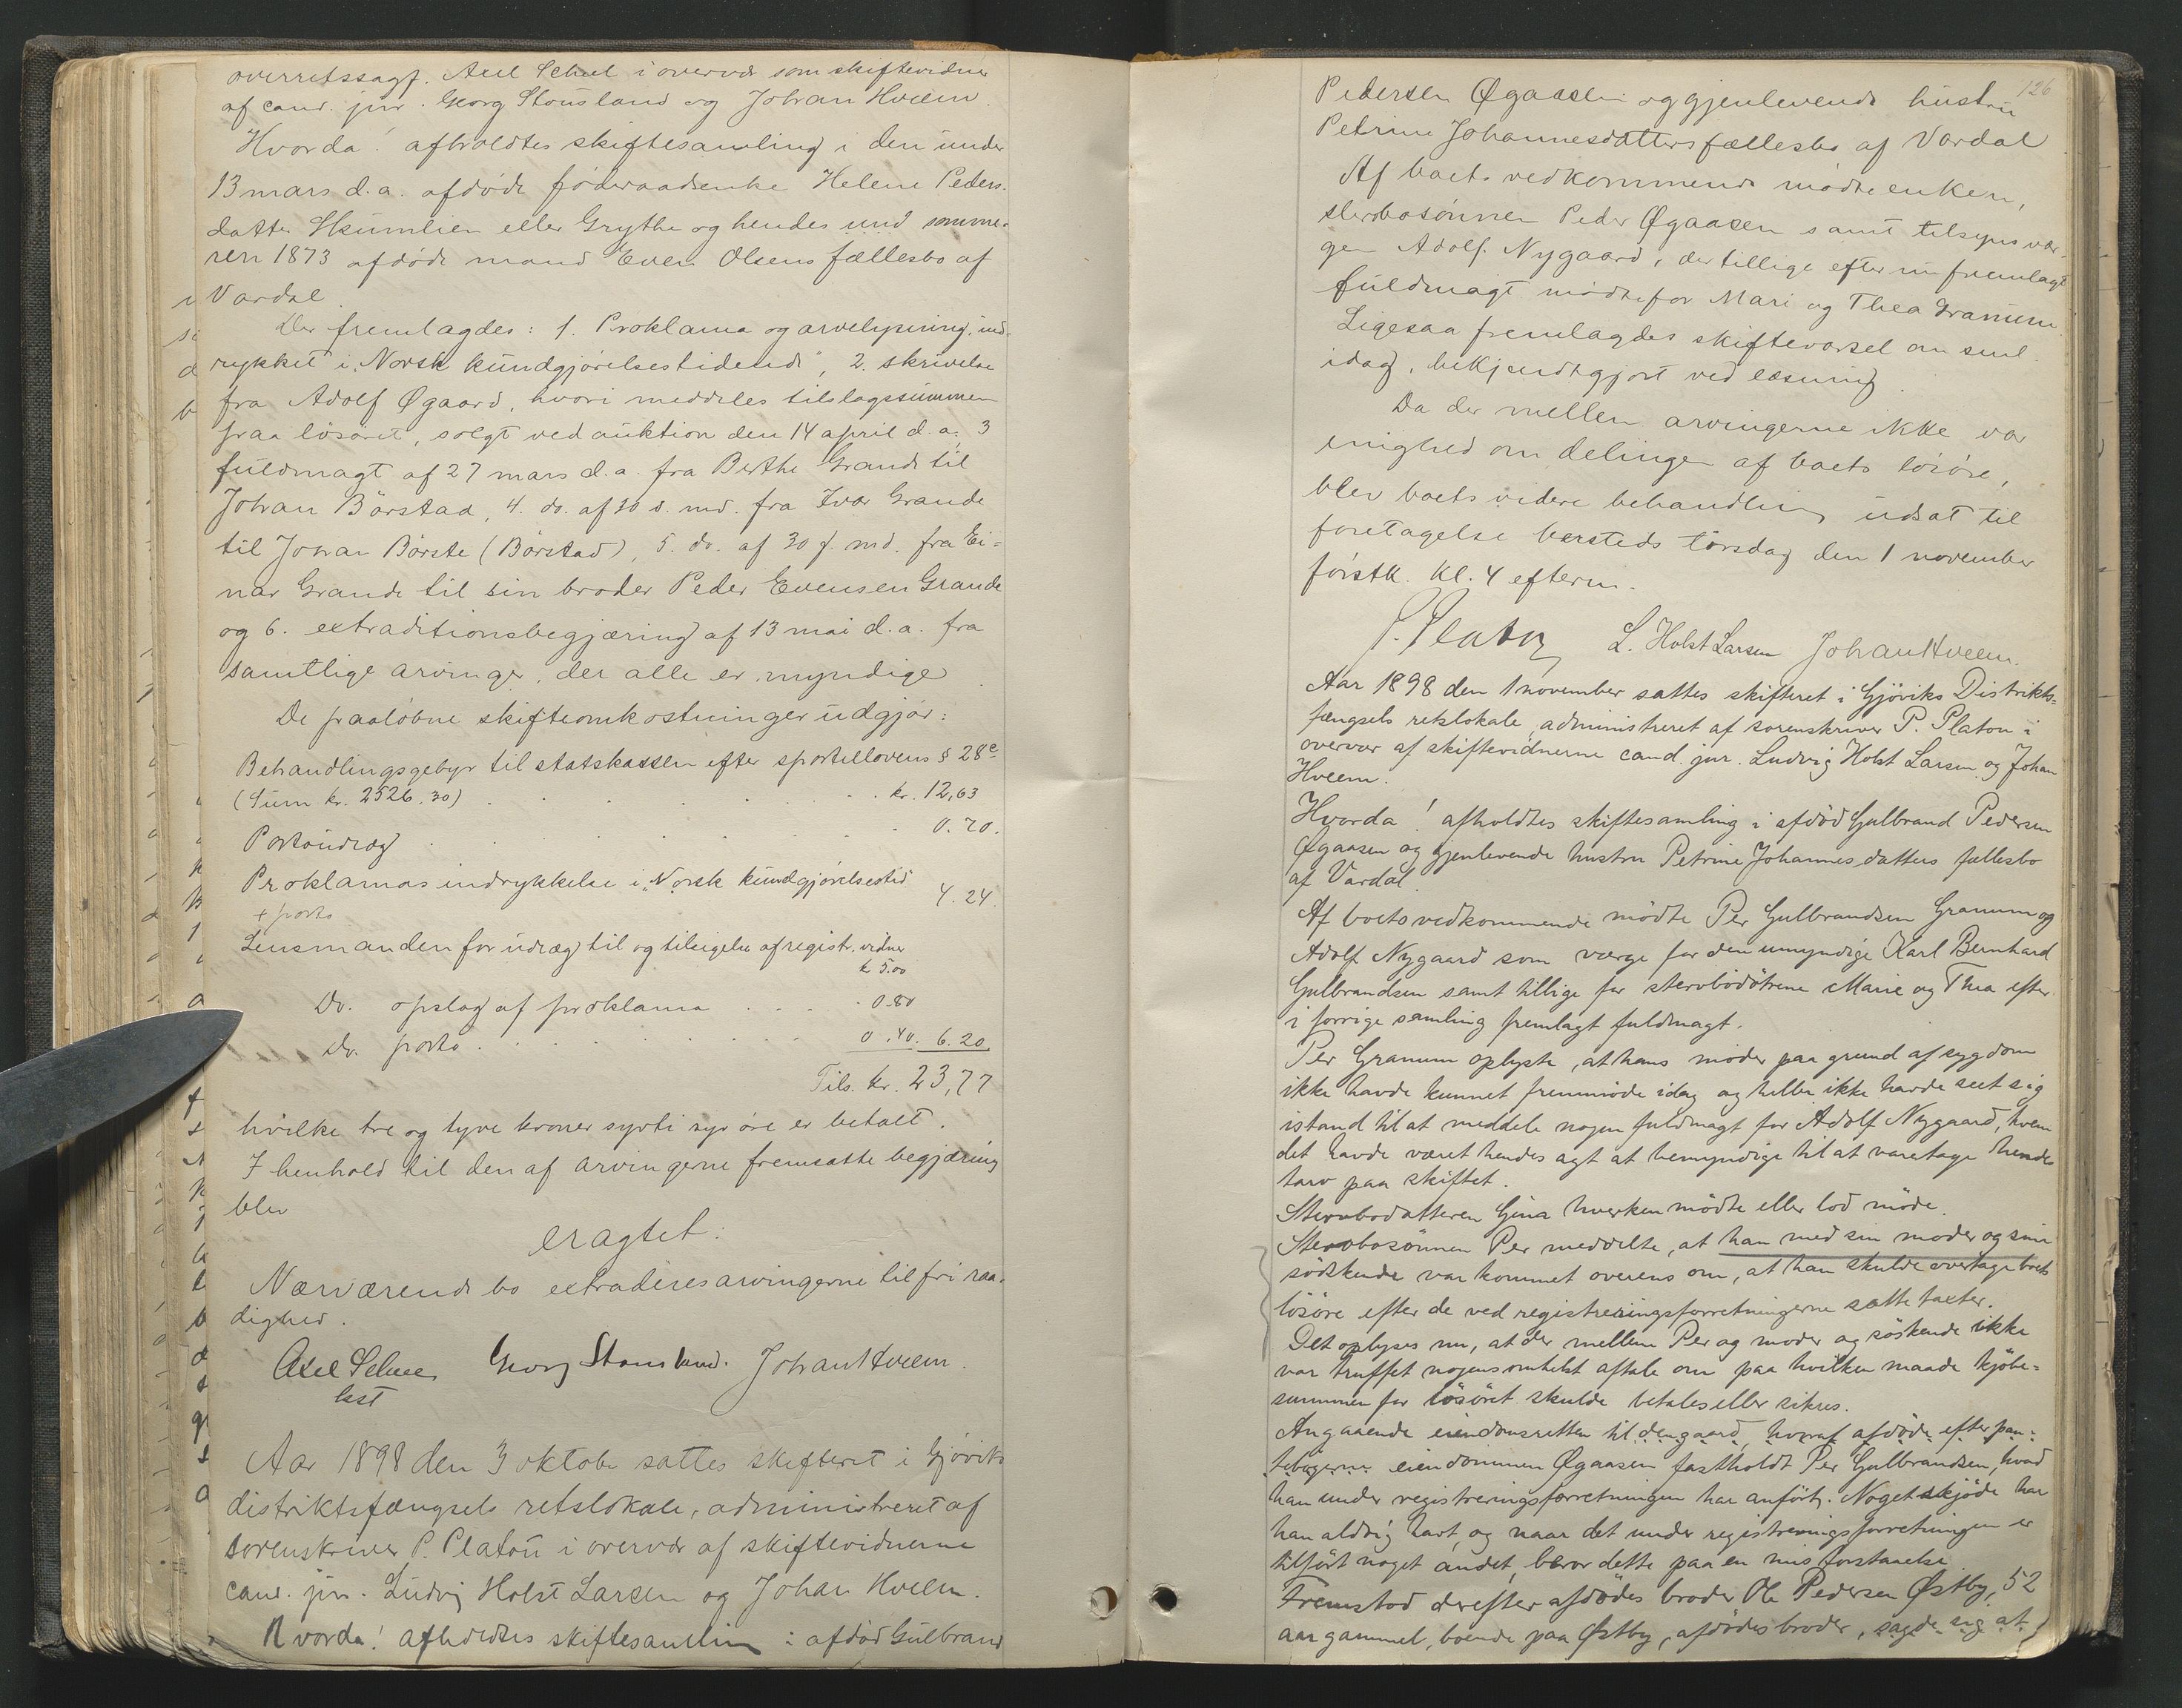 overretssagf. Axel Scheel i overvær som skiftevidner
af cand. jur. Georg Stousland og Johan Hveem.
Hvorda! afholdtes skiftesamling i den under
13 mars d.a. afdøde føderaadsenke Helene Peders-
datter Skumlien eller Grythe og hendes und somme-
ren 1873 afdøde mand Even Olsens fællesbo af
Vardal.
Der fremlagdes: 1. Proklama og arvelysning, ind-
rykket i „Norsk kundgjørelsestidende", 2. skrivelse
fra Adolf Øgaard, hvori meddeles tilslagssummen
paa løsøret, solgt ved auktion den 14 april d.a., 3
fuldmagt af 27 mars d.a. fra Berthe Grande til
Johan Børstad, 4. do. af 30 s. md. fra Ivar Grande
til Johan Børste (Børstad), 5. do. af 30 f. md. fra Ei-
nar Grande til sin broder Peder Evensen Grande
og 6. extraditionsbegjæring af 13 mai d.a. fra
samtlige arvinger, der alle er myndige.
De paaløbne skifteomkostninger udgjør:
Behandlingsgebyr til statskassen efter sportellovens § 28c
(Sum kr. 2526.30) . . . kr. 12,63
Portoudlæg . . . 0.70.
Proklamas indrykkelse i „Norsk kundgjørelsestid
+ porto 4.24
Lensmanden for udlæg til og tilsigelse af registr. vidner
kr 5.00
Do. opslag af proklama . . . 0.80
Do. porto . . . 0.40. 6.20
Tils. kr. 23,77
hvilke tre og tyve kroner sytti syv øre er betalt.
I henhold til den af arvingerne fremsatte begjæring
blev
eragtet:
Nærværende bo extraderes arvingerne til fri raa-
dighed.
Axel Scheel Georg Stousland. Johan Hveem.
kst
Aar 1898 den 3 oktober sattes skifteret i Gjøviks
distriktsfængsels retslokale, administreret af
sorenskriver P. Platou i overvær af skiftevidnerne
cand. jur. Ludvig Holst Larsen og Johan Hveem.
Hvorda! afholdtes skiftesamling i afdød Gulbrand
126
Pedersen Øgaasen og gjenlevende hustru
Petrine Johannesdatters fællesbo af Vardal
Af boets vedkommende mødte enken,
sterbosønnen Peder Øgaasen samt tilsynsvær-
gen Adolf Nygaard, der tillige efter nu fremlagt
fuldmagt mødte for Mari og Thea Granum.
Ligesaa fremlagdes skiftevarsel om saml.
idag, bekjendtgjort ved læsning.
Da der mellem arvingerne ikke var
enighed om delingen af boets løsøre,
blev boets videre behandling udsat til
foretagelse hersteds torsdag den 1 november
førstk. kl. 4 efterm.
P. Platou L. Holst Larsen Johan Hveem.
Aar 1898 den 1 november sattes skifteret i Gjøviks Distrikts-
fængsels retslokale, administreret af sorenskriver P. Platou i
overvær af skiftevidnerne cand. jur. Ludvig Holst Larsen og Johan
Hveem.
Hvorda! afholdtes skiftesamling i afdød Gulbrand Pedersen
Øgaasen og gjenlevende hustru Petrine Johannesdatters fællesbo
af Vardal.
Af boets vedkommende mødte Per Gulbrandsen Granum og
Adolf Nygaard som værge for den umyndige Karl Bernhard
Gulbrandsen samt tillige for stervbodøtrene Marie og Thea efter
i forrige samling fremlagt fuldmagt.
Per Granum oplyste, at hans moder paa grund af sygdom
ikke havde kunnet fremmøde idag og heller ikke havde seet sig
istand til at meddele nogen fuldmagt for Adolf Nygaard, hvem
det havde været hendes agt at bemyndige til at varetage hendes
tarv paa skiftet.
Stervbodatteren Gina hverken mødte eller lod møde.
Stervbosønnen Per meddelte, at han med sin moder og sine
søskende var kommet overens om, at han skulde overtage boets
løsøre efter de ved registreringsforretningerne satte taxter.
Det oplyses nu, at der mellem Per og moder og søskende ikke
var truffet nogensomhelst aftale om paa hvilken maade kjøbe-
summen for løsøret skulde betales eller sikres.
Angaaende eiendomsretten til den gaard, hvoraf afdøde efter pan-
tebøgerne eiendommen Øgaasen fastholdt Per Gulbrandsen, hvad
han under registreringsforretningen har anført. Noget skjøde har
han aldrig havt, og naar det under registreringsforretningen er
tilført noget andet, beror dette paa en misforstaaelse.
Fremstod derefter afdødes broder Ole Pedersen Østby, 52
aar gammel, boende paa Østby, afdødes broder, sagde sig at